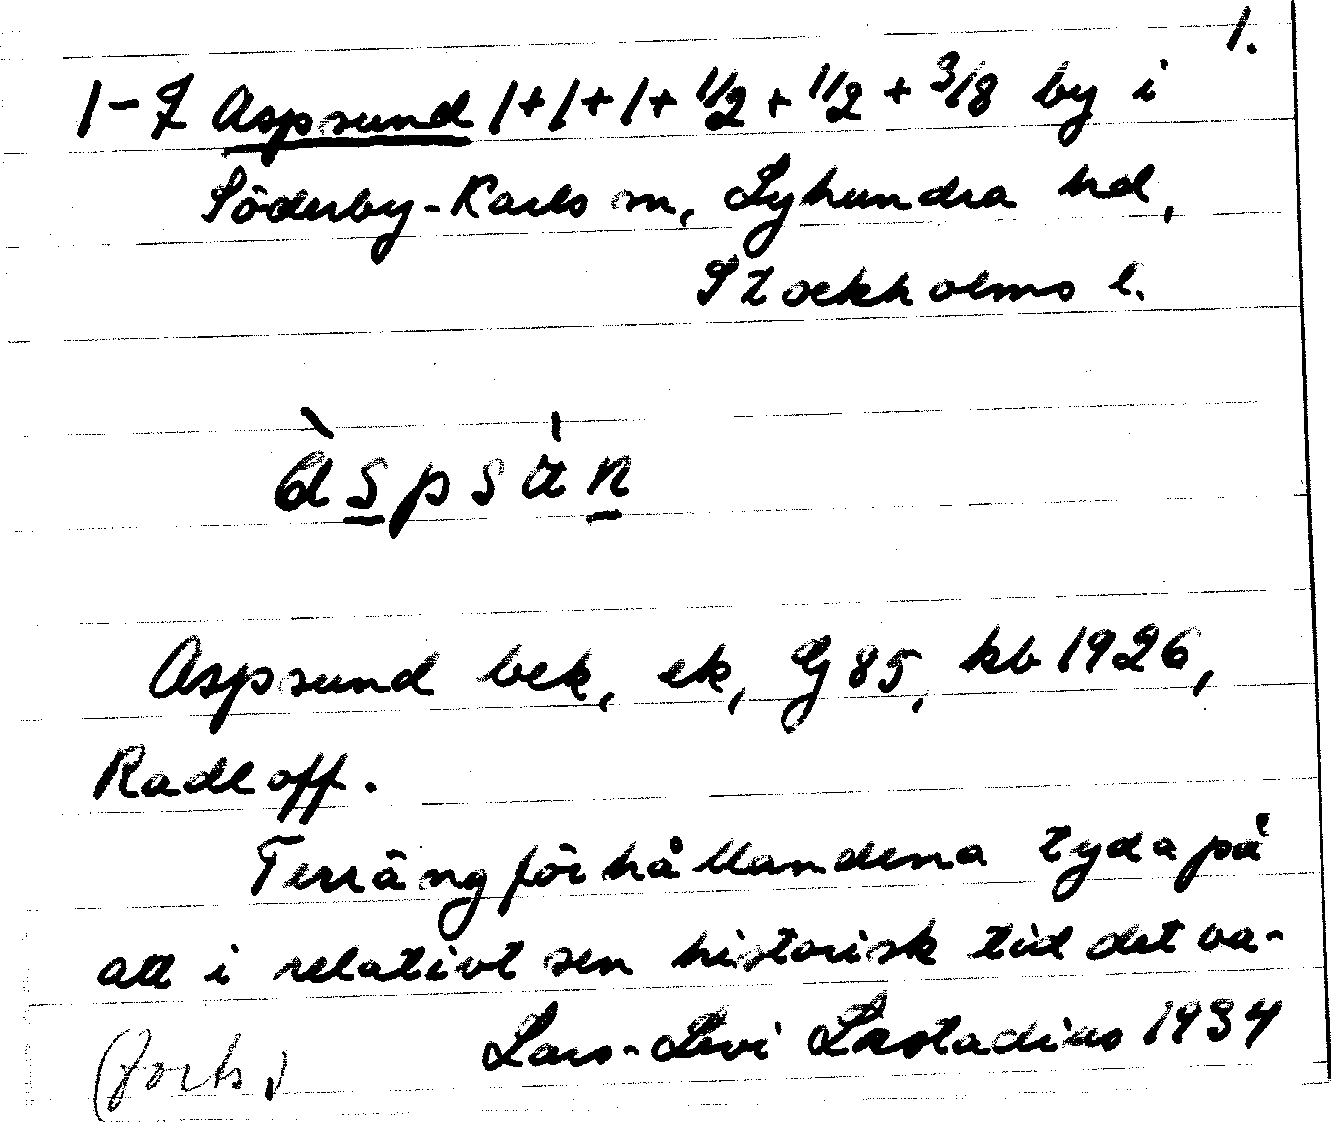 1.
1-7 Aspsund 1+1+1+ 1/2 + 1/2 + 3/8 by i
Söderby-Karls sn, Lyhundra hd,
Stockholms l.
àspsùn
Aspsund bek, ek, GJ 85, kb 1926,
Radloff.
Terrängförhållandena tyda på
att i relativt sen historisk tid det va-
Lars-Levi Læstadius 1934
(forts.)